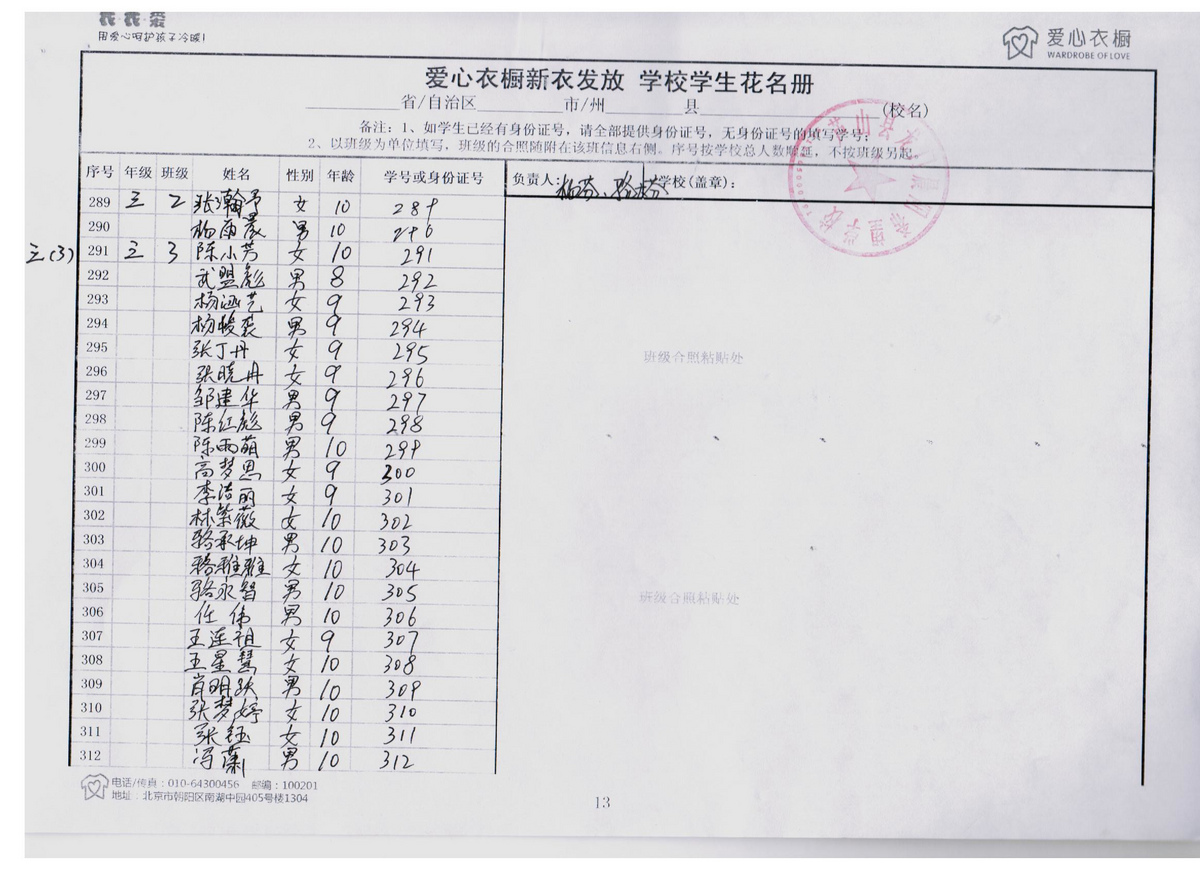 用爱心呵护孩子冷暖!
爱心衣橱
WARDROBE OF LOVE
爱心衣橱新衣发放 学校学生花名册
省/自治区 市/州 县 (校名)
备注：1、如学生已经有身份证号，请全部提供身份证号，无身份证号的填写学号；
2、以班级为单位填写，班级的合照随附在该班信息右侧。序号按学校总人数顺延，不按班级另起。
序号 年级 班级 姓名 性别 年龄 学号或身份证号 负责人： 学校(盖章)：
289 三 2 张瀚予 女 10 289
290 杨雨晨 男 10 290
三(3) 291 三 3 陈小芳 女 10 291
292 武盟彪 男 8 292
293 杨涵艺 女 9 293
294 杨骏裴 男 9 294
295 张丁丹 女 9 295
296 张晓丹 女 9 296
297 邹建华 男 9 297
298 陈红彪 男 9 298
299 陈雨萌 男 10 299
300 高梦思 女 9 300
301 李洁丽 女 9 301
302 林紫薇 女 10 302
303 骆承坤 男 10 303
304 骆雅雅 女 10 304
305 骆永智 男 10 305
306 任伟 男 10 306
307 王连祖 女 9 307
308 王星慧 女 10 308
309 肖明跃 男 10 309
310 张梦婷 女 10 310
311 张钰 女 10 311
312 冯萧 男 10 312
班级合照粘贴处
班级合照粘贴处
电话/传真：010-64300456 邮编：100201
地址：北京市朝阳区南湖中园405号楼1304
13